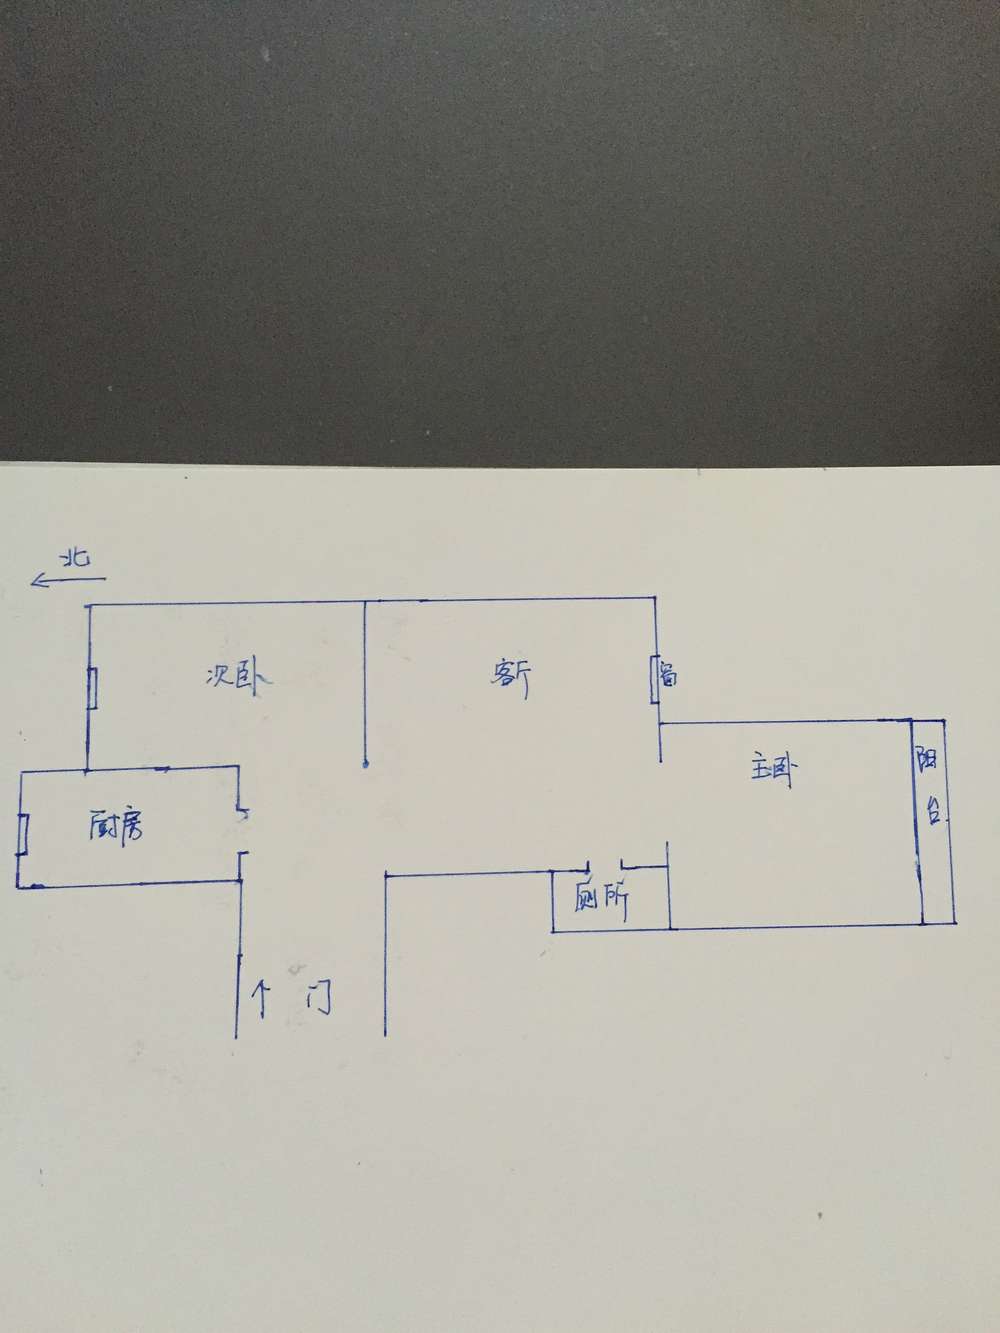 北
次卧
客厅
窗
主卧
阳台
厨房
厕所
个 门